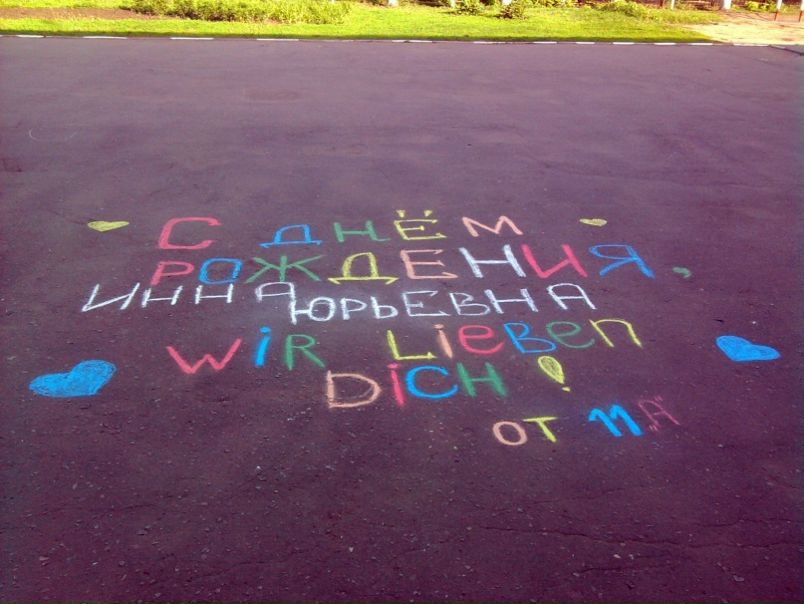 С ДНЁМ
РОЖДЕНИЯ,
ИННА ЮРЬЕВНА
WIR LIEBEN
DICH!
ОТ 11 "А"